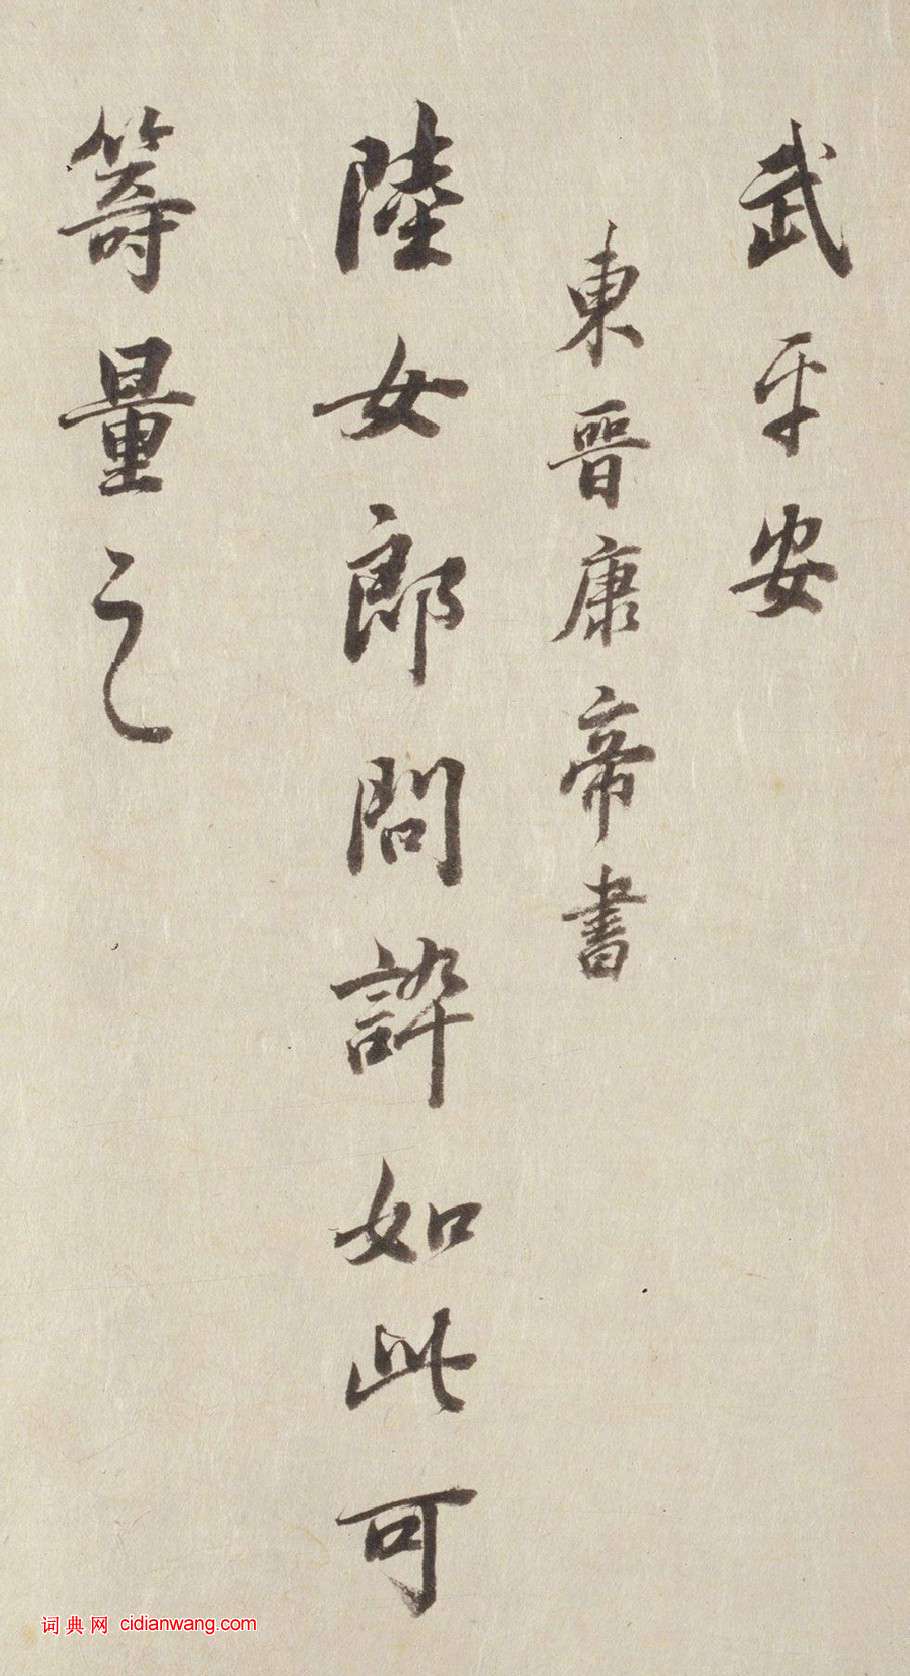 武平安
東晉康帝書
陸女郎問誶如此可
籌量之
词典网 cidianwang.com